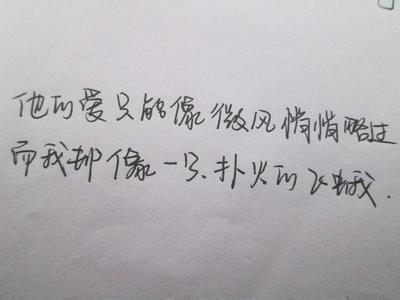 他的爱只能像微风悄悄略过
而我却像一只扑火的飞蛾.